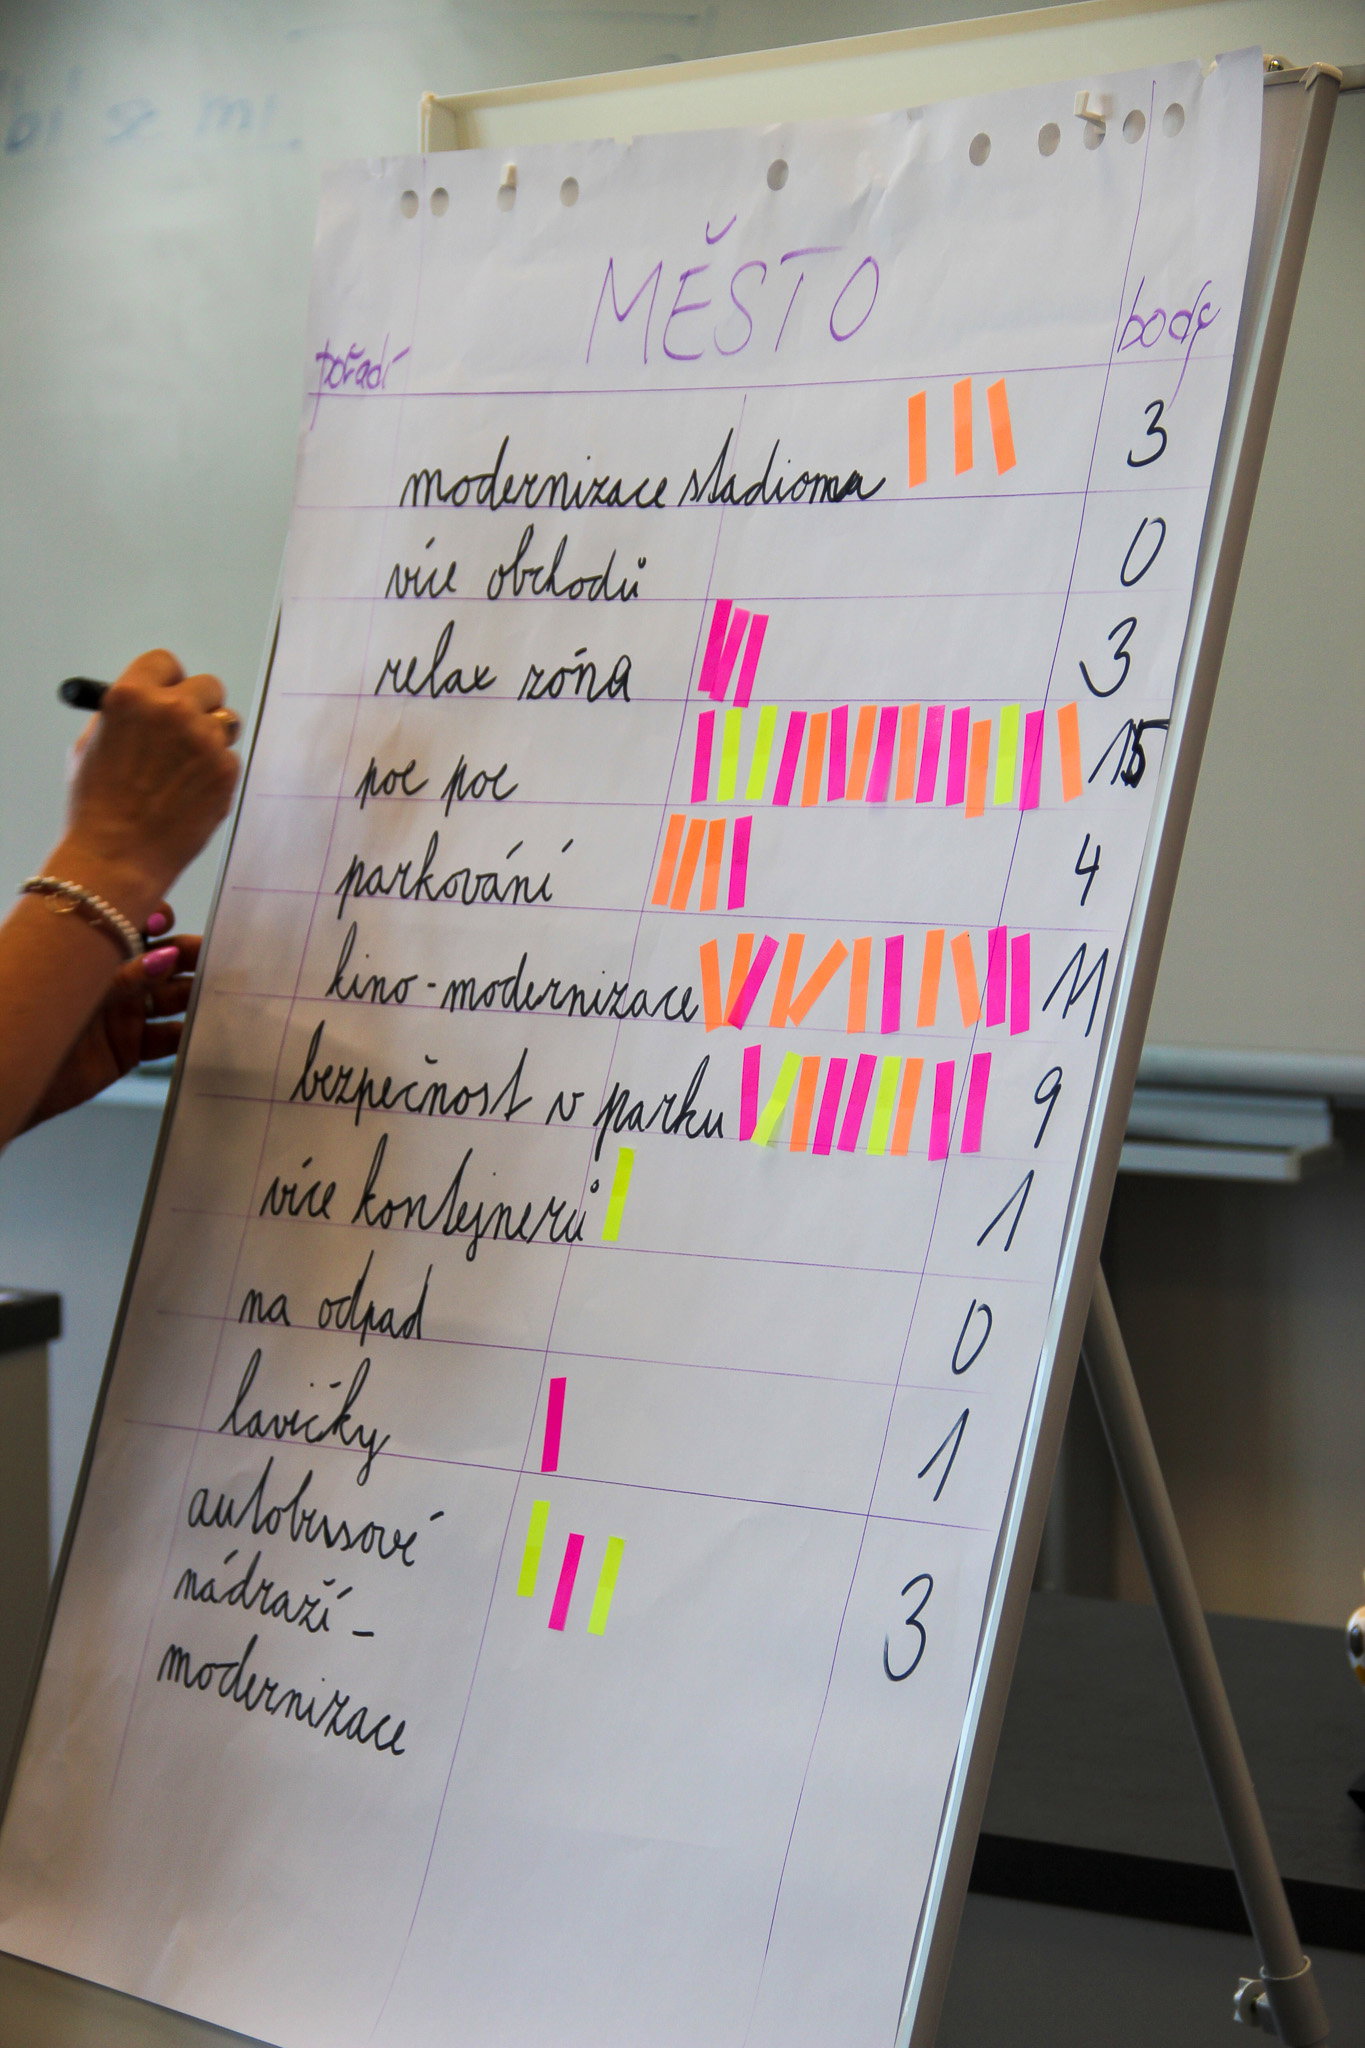 MĚSTO
pořadí
body
modernizace stadionu 3
více obchodů 0
relax zóna 3
poc poc 15
parkování 4
kino - modernizace 11
bezpečnost v parku 9
více kontejnerů 1
na odpad 0
lavičky 1
autobusové
nádraží - 3
modernizace